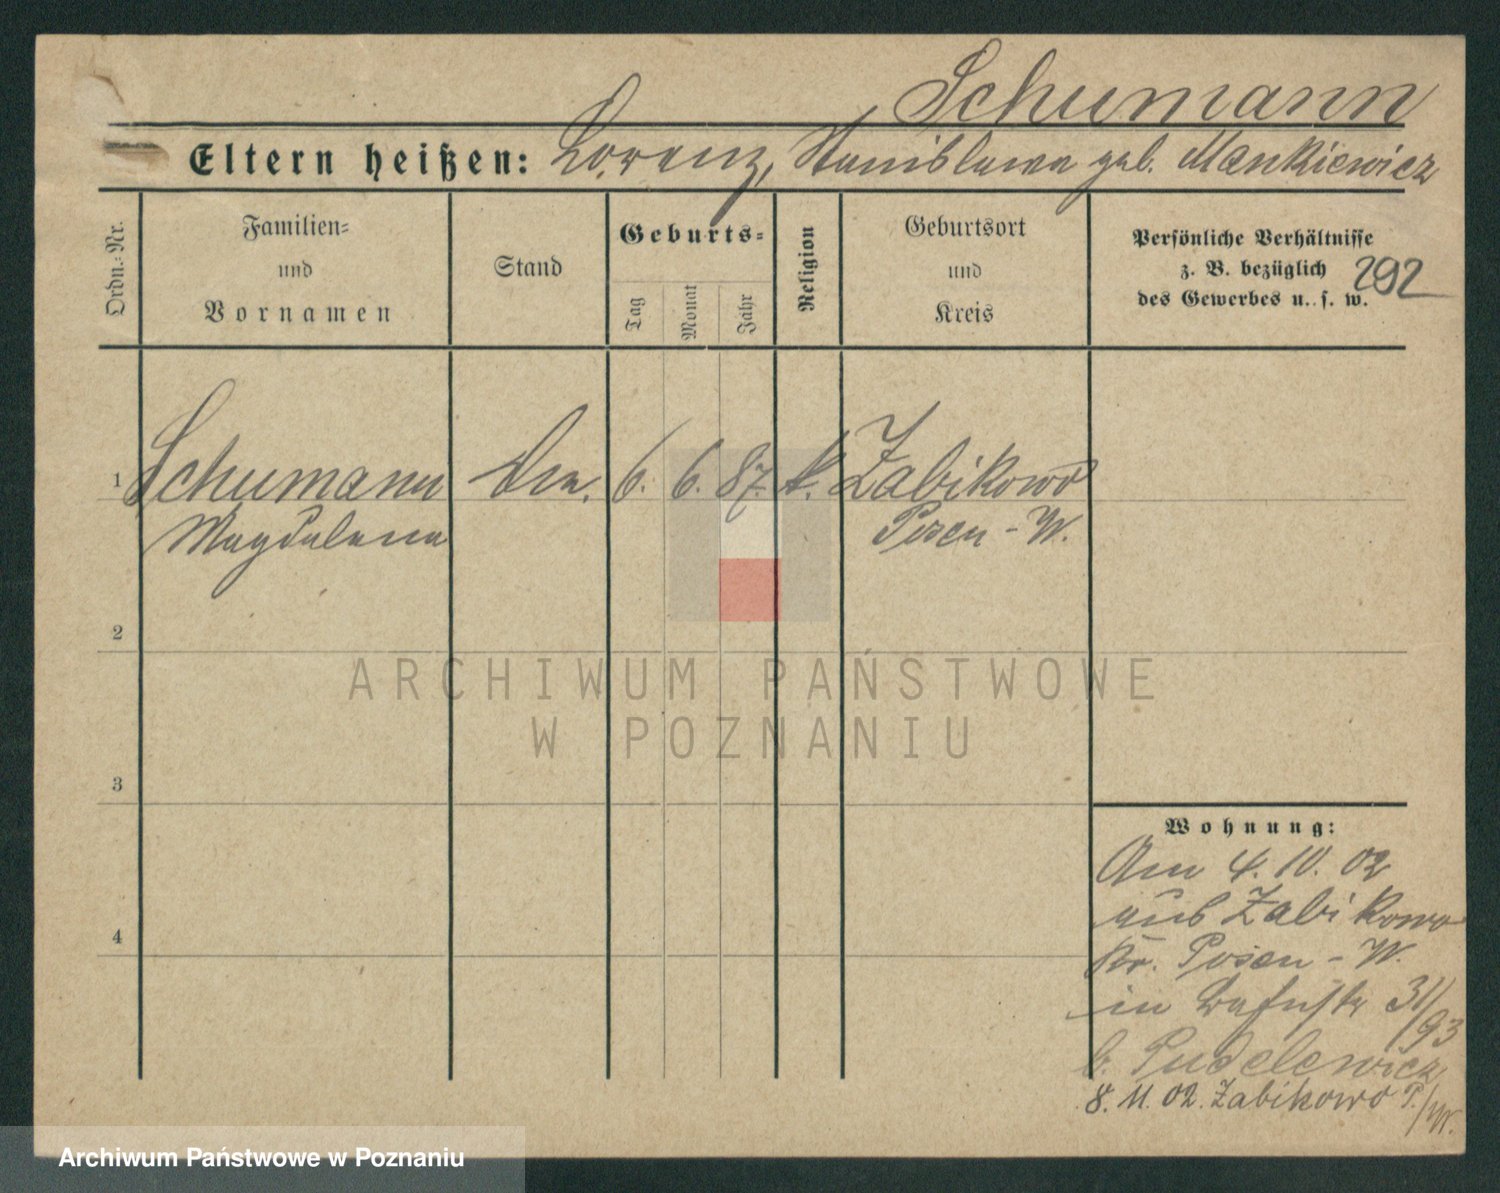 Schumann
Eltern heißen: Lorenz, Stanislawa geb. Mankiewicz
Ordn.-Nr.
Familien-
und
Vornamen
Stand
Geburts-
Tag
Monat
Jahr
Religion
Geburtsort
und
Kreis
Persönliche Verhältnisse
z. B. bezüglich
des Gewerbes u. s. w.
292
1 Schumann 6. 6. 87. k. Zabikowo
Magdalena Posen-W.
2
3
4
Wohnung:
Am 4. 10. 02
aus Zabikowo
Kr. Posen-W.
in 31/93
b. Pudelewicz
8. 11. 02. Zabikowo P./W.
ARCHIWUM PAŃSTWOWE
W POZNANIU
Archiwum Państwowe w Poznaniu